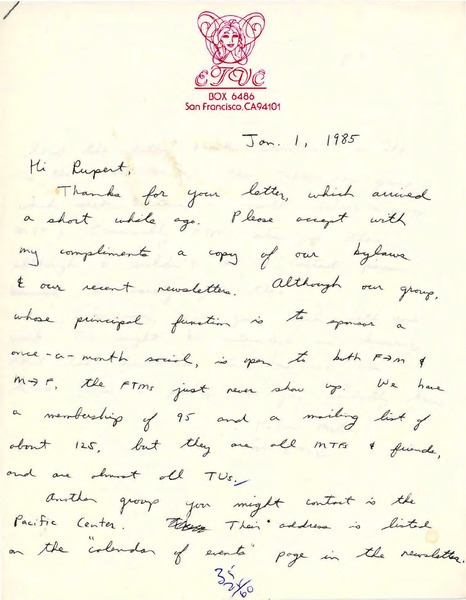 ETVC
BOX 6486
San Francisco, CA94101
Jan. 1, 1985
Hi Rupert,
Thanks for your letter, which arrived
a short while ago. Please accept with
my compliments a copy of our bylaws
& our recent newsletters. Although our group,
whose principal function is to sponsor a
once-a-month social, is open to both F→M &
M→F, the FTMs just never show up. We have
a membership of 95 and a mailing list of
about 125, but they are all MTFs & friends,
and are almost all TVs.
Another group you might contact is the
Pacific Center. Their address is listed
on the "calendar of events" page in the newsletter.